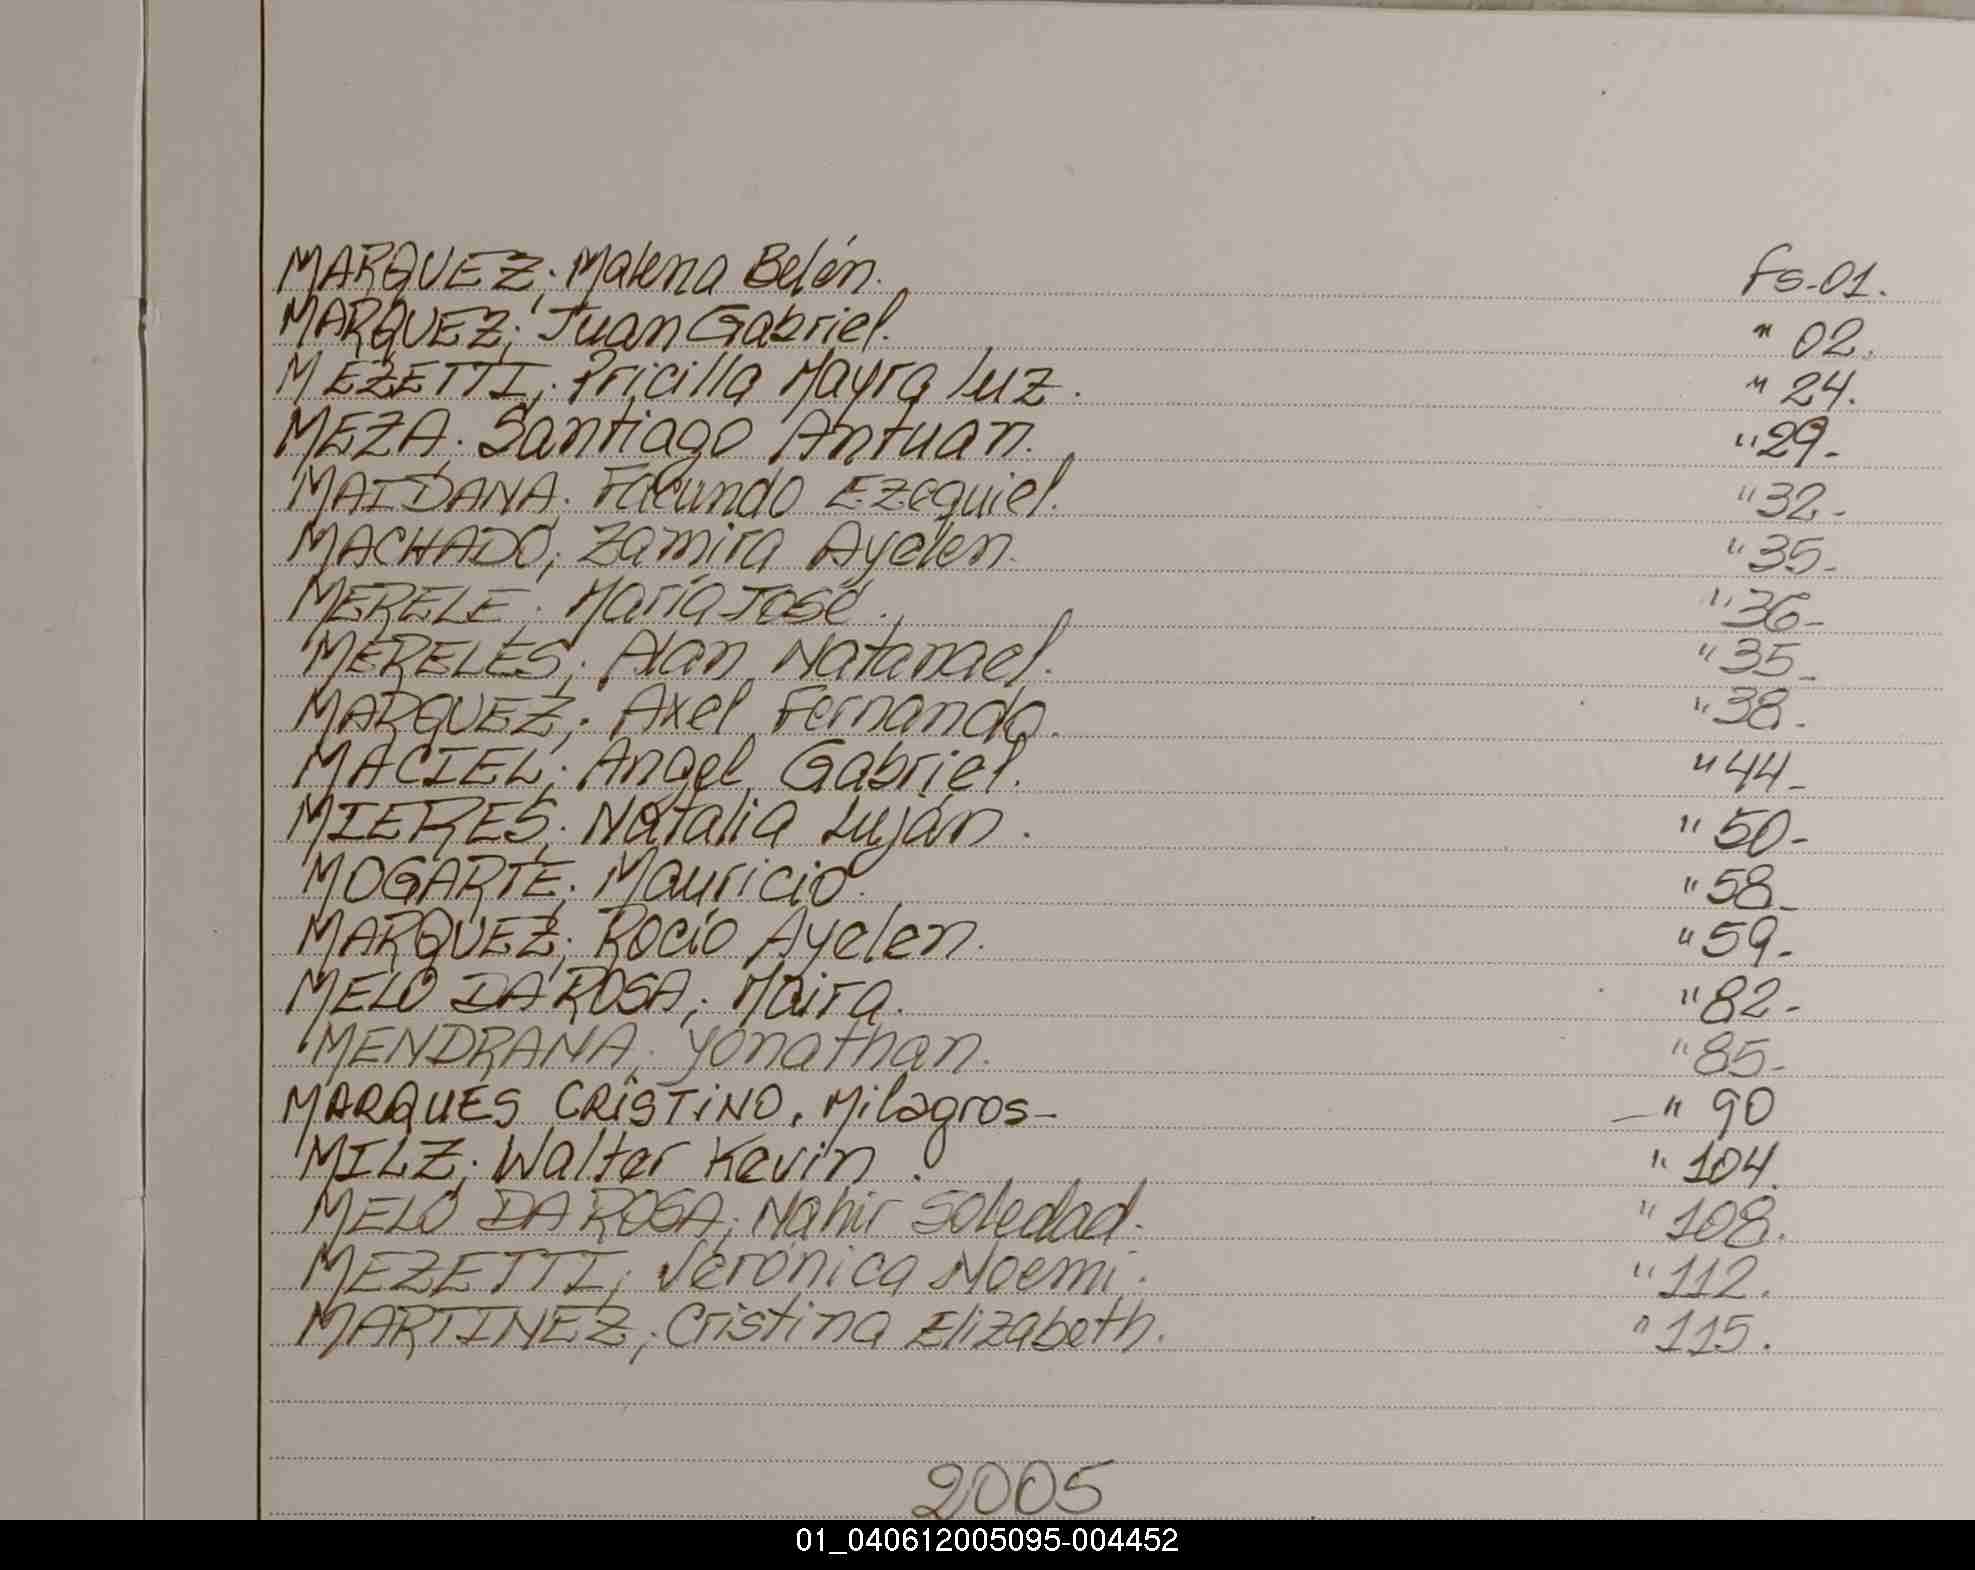 MARQUEZ; Malena Belén. Fs. 01.
MARQUEZ; Juan Gabriel. " 02.
MEZETTI; Pricilla Mayra Luz. " 24.
MEZA; Santiago Antuan. " 29-
MAIDANA; Facundo Ezequiel. " 32-
MACHADO; Zamira Ayelen. " 35-
MERELE; María José. " 36-
MERELES; Alan Natanael. " 35-
MARQUEZ; Axel Fernando. " 38-
MACIEL; Angel Gabriel. " 44-
MIERES; Natalia Luján. " 50-
MOGARTE; Mauricio. " 58-
MARQUEZ; Rocío Ayelen. " 59-
MELO DA ROSA; Maira. " 82-
MENDRANA; Yonathan. " 85-
MARQUES CRISTINO, Milagros- - " 90
MILZ; Walter Kevin. " 104.
MELO DA ROSA; Nahir Soledad. " 108.
MEZETTI; Verónica Noemi. " 112.
MARTINEZ; Cristina Elizabeth. " 115.
2005
01_040612005095-004452